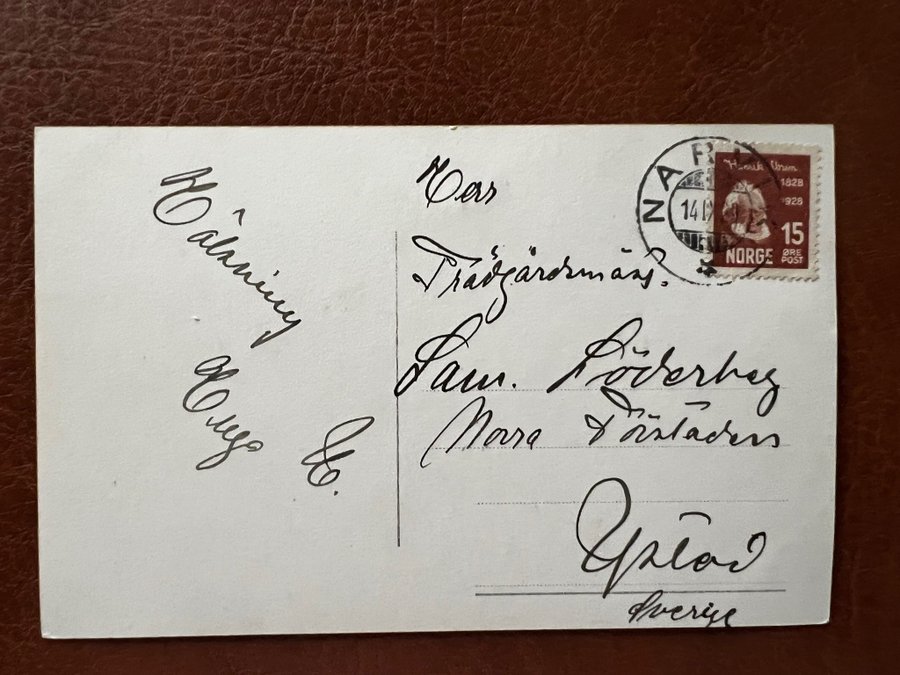 Hälsning
Hugo
H.
Herr
Trädgårdsmäst.
Sam. Söderberg
Norra Förstaden
Ystad
Sverige
NARVIK
14 IX
Henrik Ibsen
1828
1928
15
NORGE
ØRE
POST